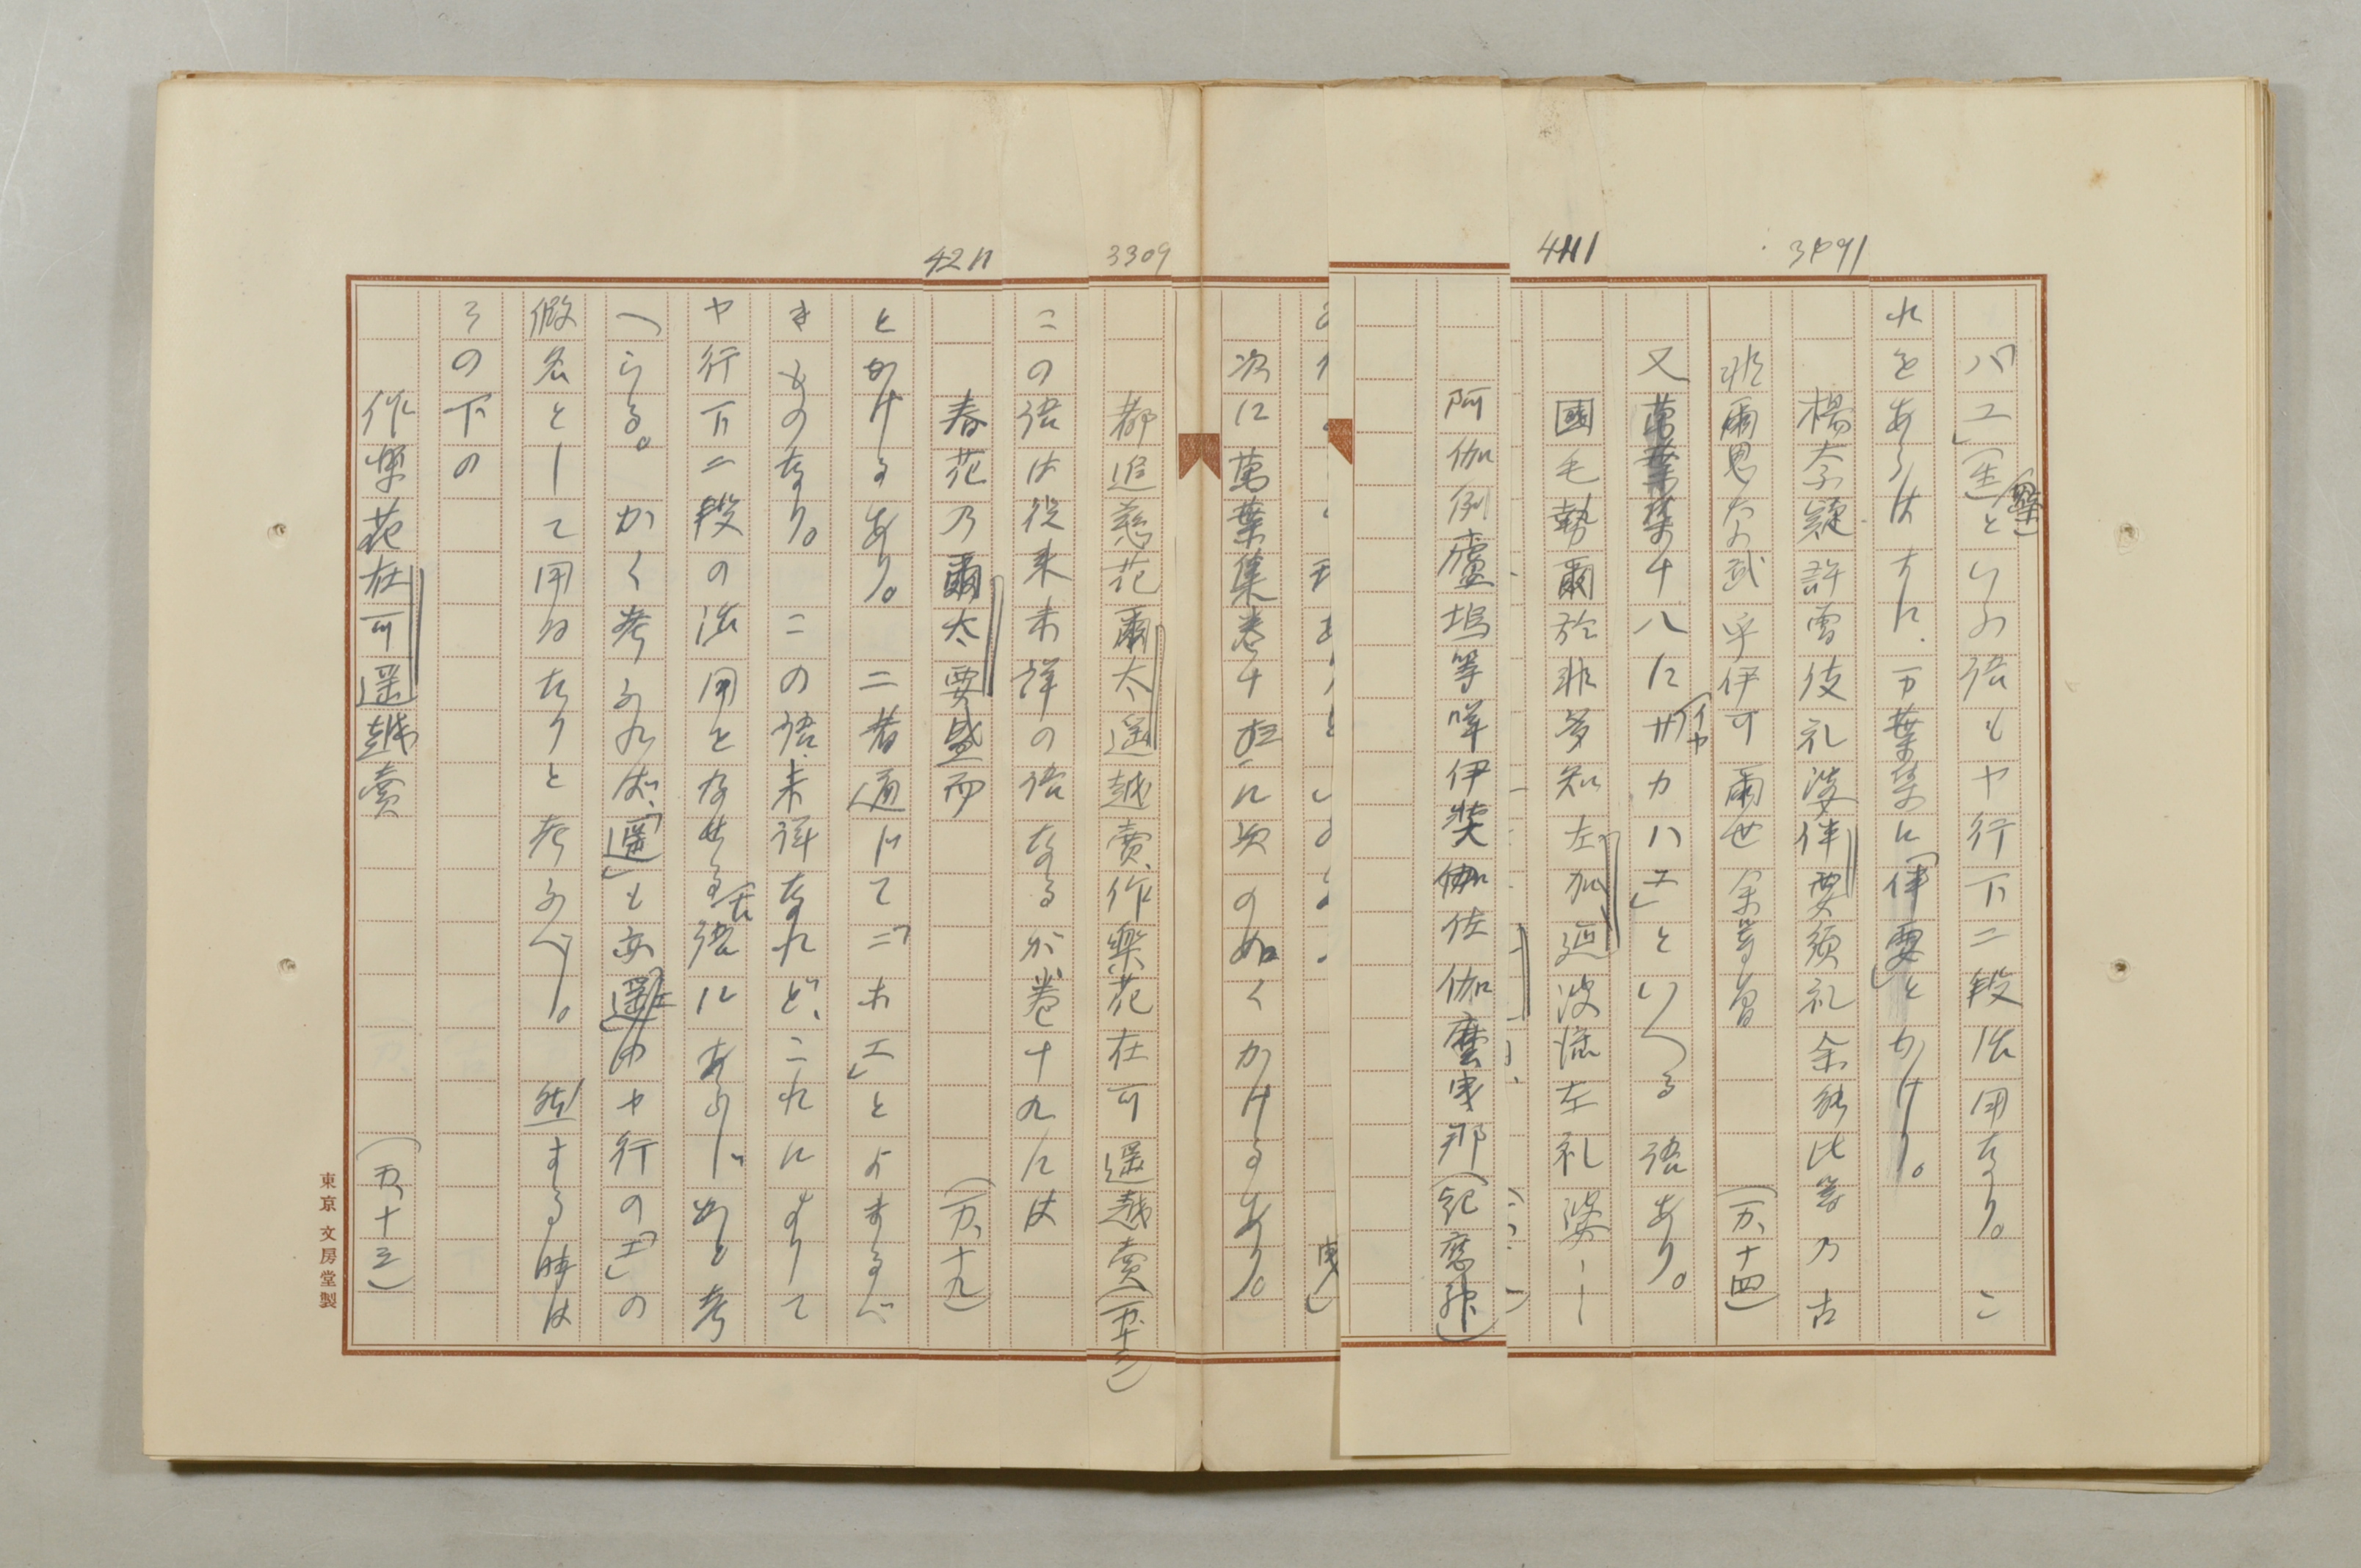 3491
4111
バエ」(生)(蘖)といふ語もヤ行下二段活用なり。こ
れをあらはすに、万葉集に「伴要」とかけり。
楊奈疑許曽伎礼波伴要須礼余能比等乃古
非爾思奈武乎伊可爾世余等曽(万、十四)
又萬葉集十八に「イヤサカハエ」といへる語あり。
國毛勢爾於非多知左加延波流左礼婆ー
阿伽例廬塢等咩伊奘伽佐伽麼曳那(紀應神)
曳」
次に萬葉集巻十三に次の如くかけるあり。
3309
4211
都追慈花爾太遥越賣、作樂花在可遥越賣(万十三)
この語は従来未詳の語なるが、巻十九には
春花乃爾太要盛而(万、十九)
とかけるあり。二者通じて「ニホエ」とよまるべ
きものなり。この語未詳なれど、これによりて
ヤ行下二段の活用をなせる古語にあらじかと考
へらる。かく考ふれば、「遥」も亦ヤ行の「エ」の
假名として用ゐたりと考ふべし。然する時は
その下の
作樂花在可遥越賣(万、十三)
東京文房堂製